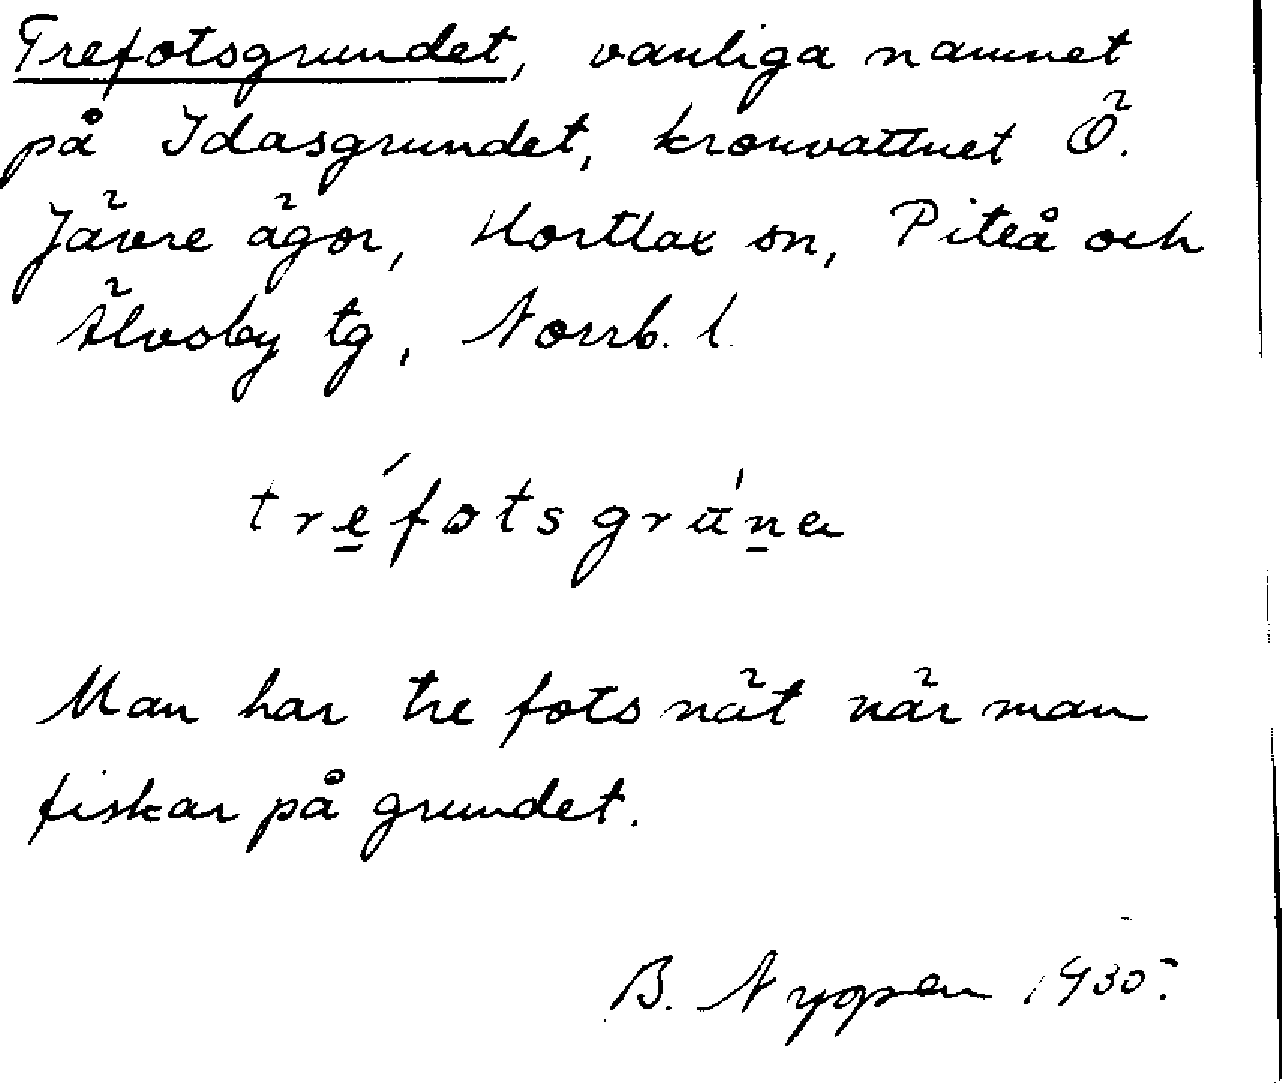 Trefotsgrundet, vanliga namnet
på Idasgrundet, kronvattnet Ö.
Jävre ägor, Hortlax sn, Piteå och
Älvsby tg, Norrb. l.
tréfotsgrúna
Man har tre fots nät när man
fiskar på grundet.
B. 1930.